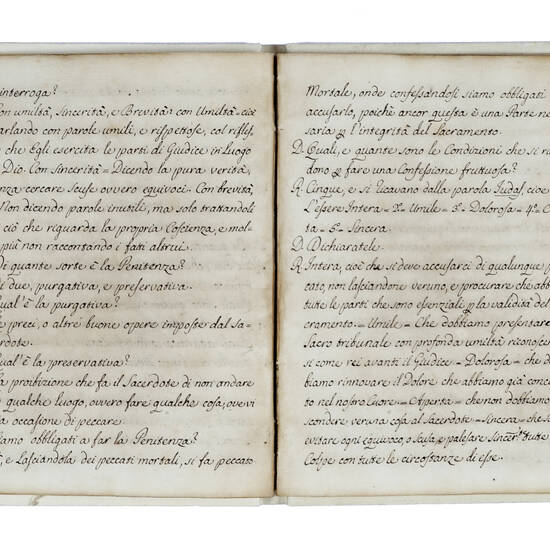 interroga?
on umiltà, Sincerità, e Brevità = con Umiltà = cioè
arlando con parole umili, e rispettose, col rifles,
che Egli esercita le parti di Giudice in Luogo
Dio. Con Sincerità = Dicendo la pura verità,
nza cercare Scuse ovvero equivoci. Con brevità,
Non dicendo parole inutili, ma solo trattandoli
ciò che riguarda la propria Coscienza, e mol-
più non raccontando i fatti altrui.
Di quante sorte è la Penitenza?
i due, purgativa, e preservativa.
ual'è la purgativa?
e preci, o altre buone opere imposte dal Sa-
rdote.
ual'è la preservativa?
a proibizione che fa il Sacerdote di non andare
qualche luogo, ovvero fare qualche cosa, ove vi
a occasione di peccare.
iamo obbligati a far la Penitenza?
, e Lasciandola dei peccati mortali, si fa peccato
Mortale, onde confessandosi siamo obbligati
accusarlo, poichè ancor questa è una Parte ne
saria p l'integrità del Sacramento.
D. Quali, e quante sono le Condizioni che si ri
dono p fare una Confessione fruttuosa?
R. Cinque, e si ricavano dalla parola Iudas, cioè
L'essere Intera = 2.a Umile = 3.a Dolorosa = 4.a
ta = 5.a Sincera.
D. Dichiaratele.
R. Intera, cioè che si deve accusarci di qualunque p
cato, non lasciandone veruno, e procurare che abb
tutte le parti che sono essenziali p la validità del
cramento. = Umile = Che dobbiamo presentare
Sacro tribunale con profonda umiltà riconosce
si come rei avanti il Giudice = Dolorosa = che d
biamo rinnovare il Dolore che abbiamo già conc
to nel nostro Cuore = Aperta = che non dobbiamo
scondere veruna cosa al Sacerdote = Sincera = che s
evitare ogni equivoco, o Scusa, e palesare tutte
Colpe con tutte le circostanze di esse.